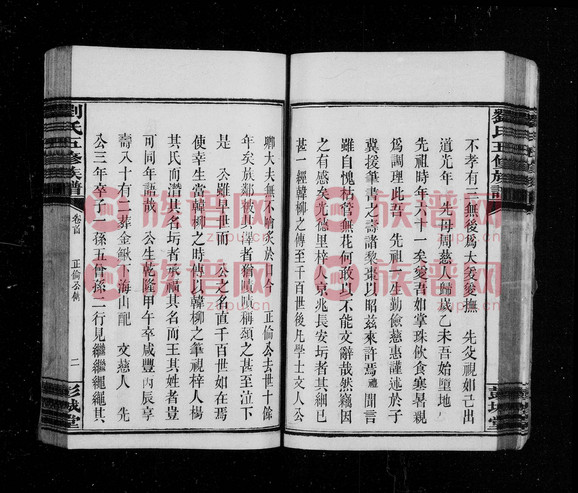 劉氏五修族譜
不孝有三無後爲大爰撫 先父視如己出
道光年 先母周慈人歸歲乙未吾始墮地
先祖時年六十一矣愛吾如掌珠飲食寒暑親
爲調理此吾 先祖一生勤儉慈惠謹述於子
冀援筆書之壽諸棃棗以昭茲來許焉 禮聞言
雖自愧枯管無花何敢以不能文辭哉然竊因
感有矣光德里梓人京兆長安圬者其細已
甚一經韓柳之傳至千百世後凡學士文人公
彭城堂
劉氏五修族譜
卷首
正倫公
二
彭城堂
卿大夫無不膾炙於口今 正倫公去世十餘
年矣族鄰被其澤者猶嘖嘖稱頌之甚至泣下
是 公雖早世而 公之名直千百世如在焉
使幸生當韓柳之時傳以韓柳之筆視梓人楊
其氏而潛其名圬者承福其名而王其姓者豈
可同年語哉 公生乾隆甲午卒咸豐丙辰享
壽八十有三葬金鍬 海山配 文慈人 先
公三年卒子 孫五曾孫二行見繼繼繩繩其
族谱网
zupu.cn